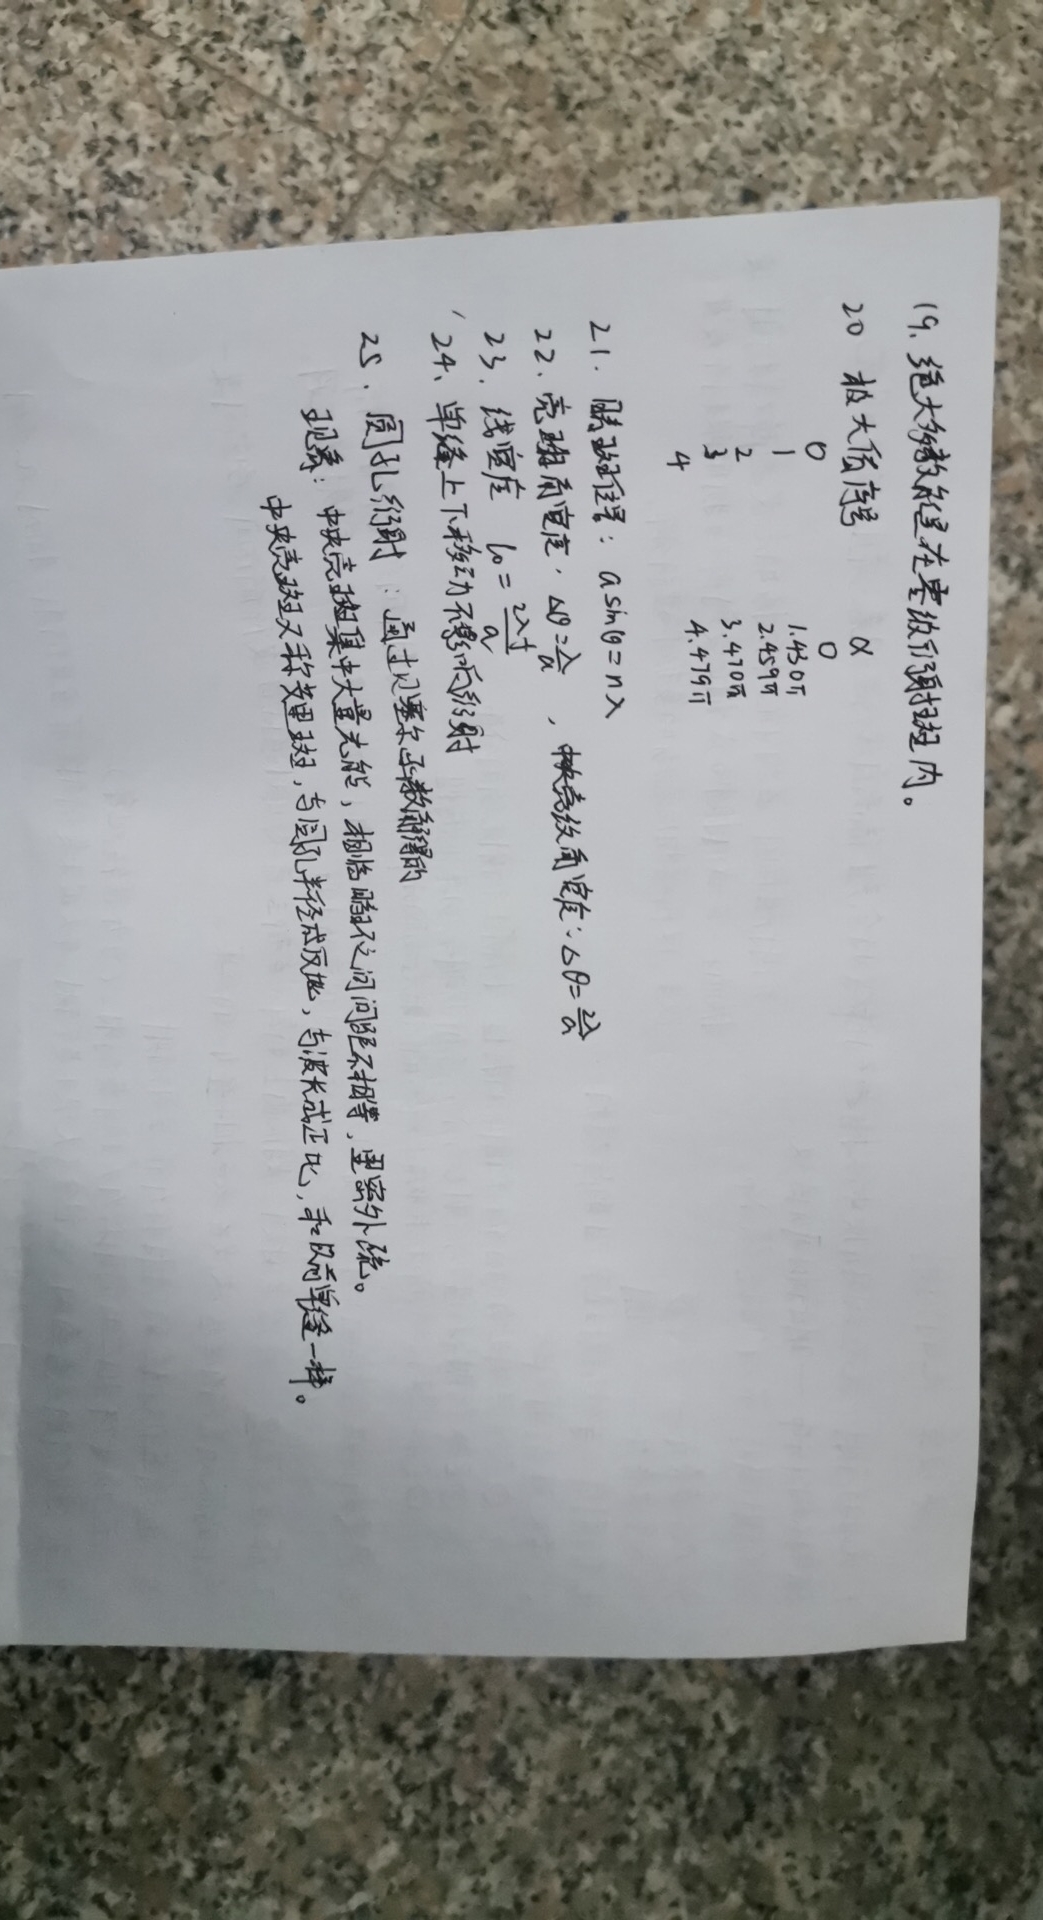 19. 绝大多数能量在零级衍射斑内。
20 极大值序号 α
0 0
1 1.430π
2 2.459π
3 3.470π
4 4.479π
21. 暗斑位置：a sinθ = nλ
22. 亮斑角宽度. Δθ = λ/a , 中央亮纹角宽度：Δθ = 2λ/a
23. 线宽度 l₀ = 2λf/a
24. 单缝上下移动不影响衍射
25. 圆孔衍射：通过贝塞尔函数解得的
现象：中央亮斑集中大量光能，相临暗环之间间距不相等，里密外疏。
中央亮斑又称艾里斑，与圆孔半径成反比，与波长成正比，和单缝一样。